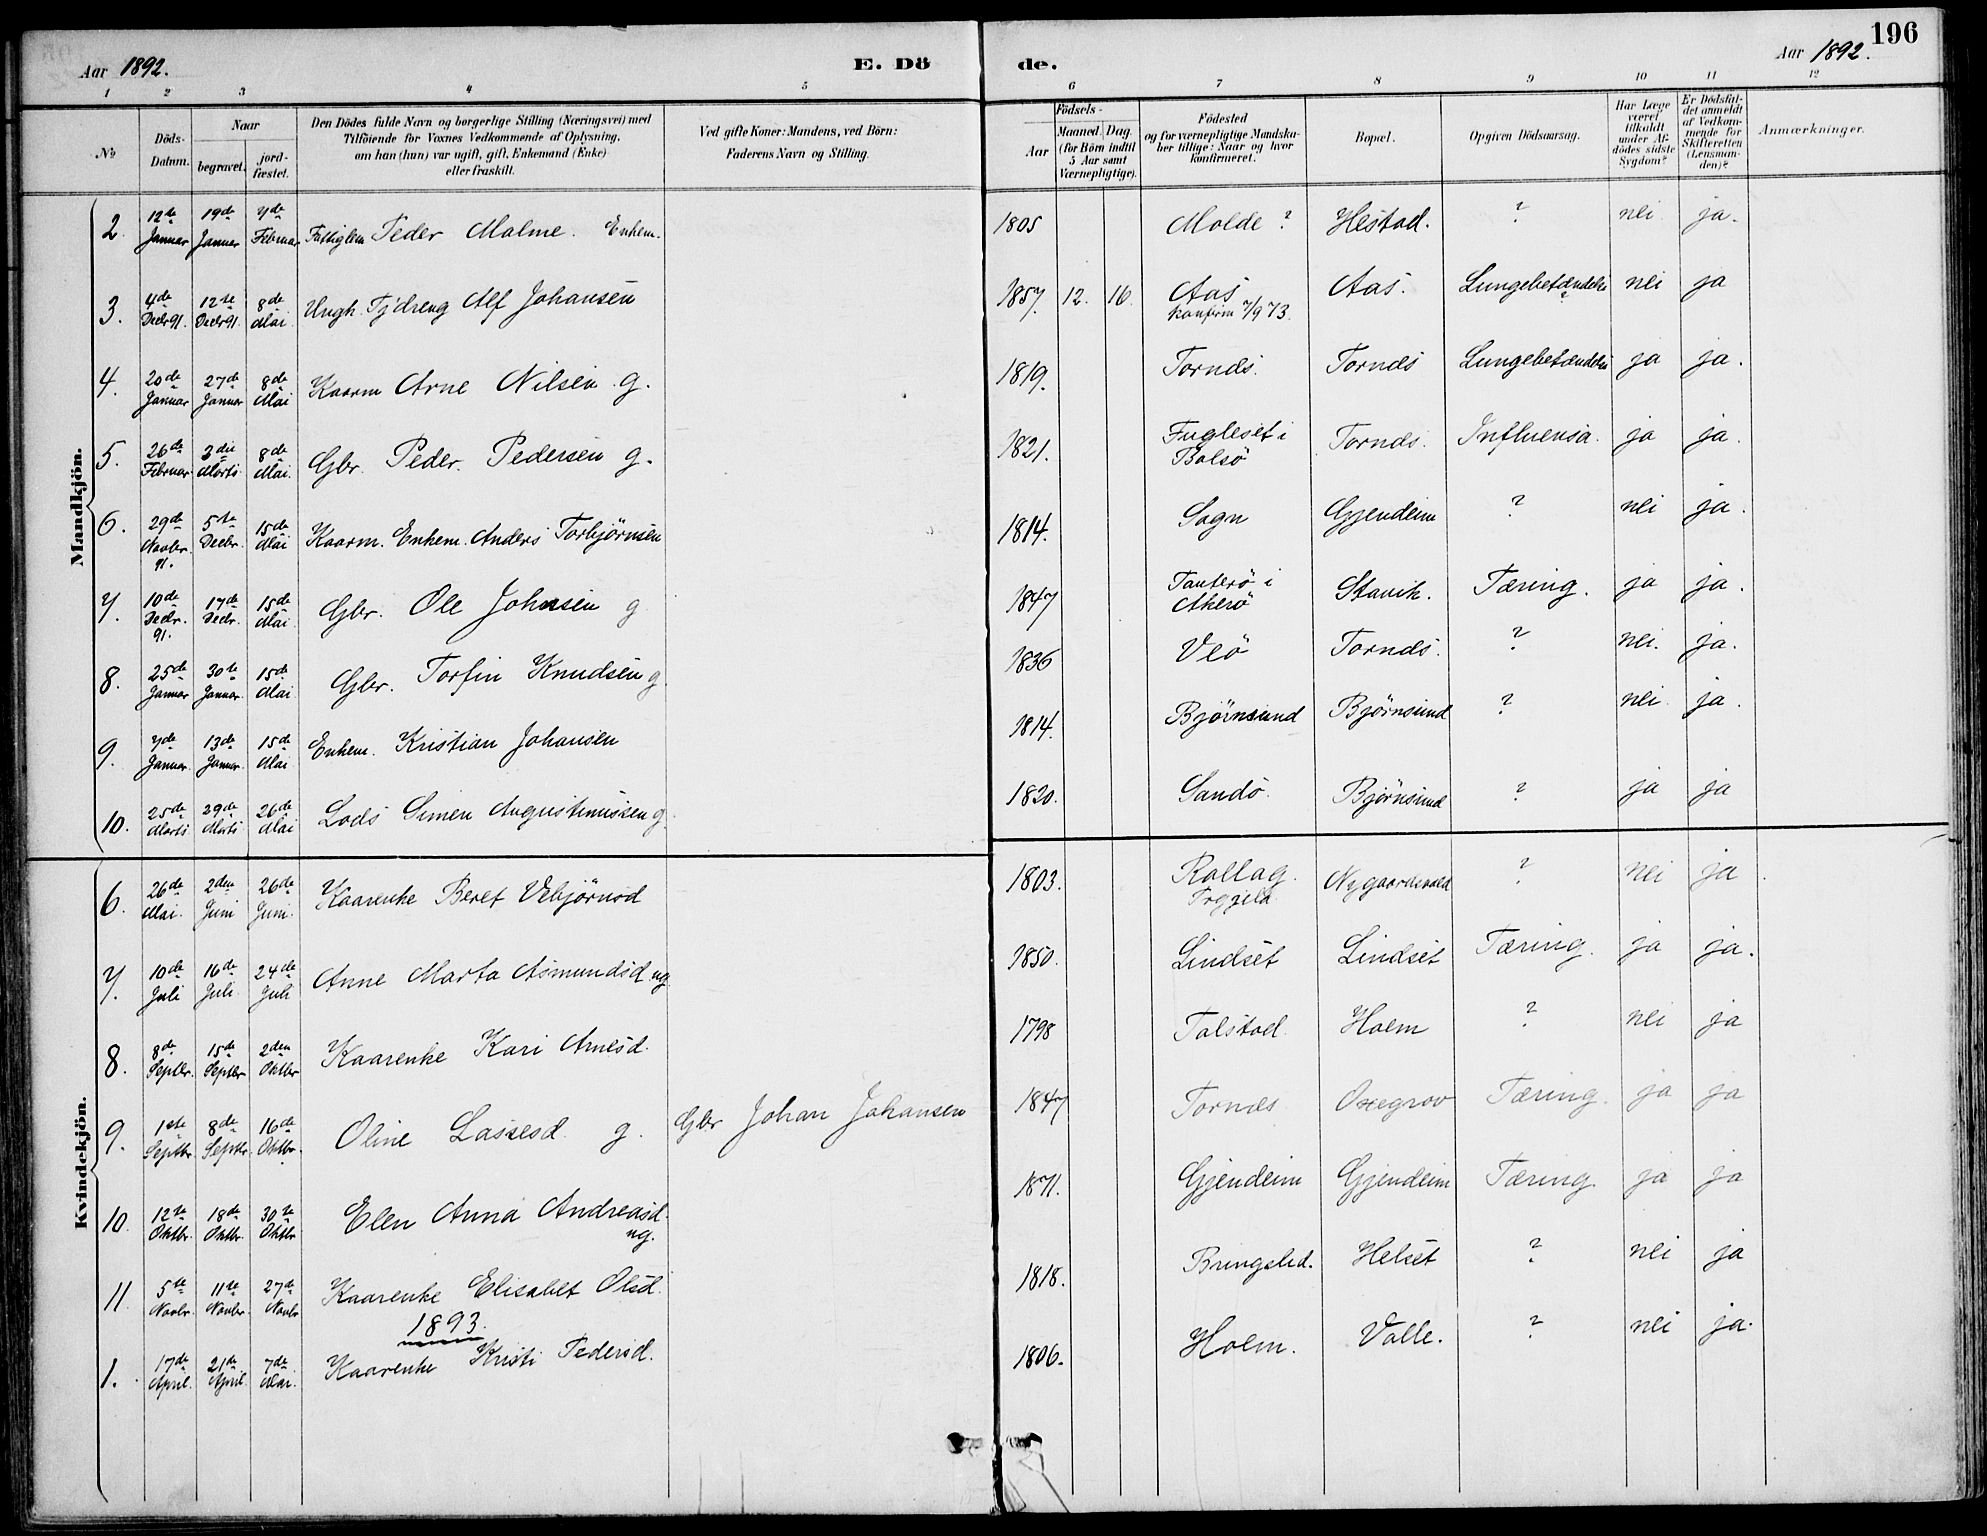 Aar 1892. E. Dö de. Aar 1892. 196
1 2 3 4 5 6 7 8 9 10 11 12
№ Döds-Datum. Naar begravet. jord-fæstet. Den Dödes fulde Navn og borgerlige Stilling (Næringsvei) med Tilföiende for Voxnes Vedkommende af Oplysning, om han (hun) var ugift, gift, Enkemand (Enke) eller fraskilt. Ved gifte Koner: Mandens, ved Börn: Faderens Navn og Stilling. Födsels- Aar Maaned. Dag. (for Börn indtil 5 Aar samt Værnepligtige). Födested og for værnepligtige Mandska-ber tillige: Naar og hvor konfirmeret. Bopæl. Opgiven Dödsaarsag. Har Læge været tilkaldt under Af-dödes sidste Sygdom? Er Dödsfal-det anmeldt af Vedkom-mende for Skifteretten (Lensman-den)? Anmærkninger.
Mandkjön.
2. 12te Januar 19de Januar 7de Februar Fattiglem Peder Malme. Enkem. 1805 Molde? Hestad. ? nei ja.
3. 4de Decbr 91. 12te Decbr 91. 8de Mai Ungk. Tj.dreng Alf Johansen 1857. 12. 16. Aas konfirm 7/9 73. Aas. Lungebetændelse nei ja
4. 20de Januar 27de Januar 8de Mai Kaarm Arne Nilsen g. 1819. Tornes. Tornes Lungebetændelse ja ja.
5. 26de Februar 3die Marts 8de Mai. Gbr. Peder Pedersen g. 1821. Fugleset i Bolsö Tornes. Influensa. ja ja.
6. 29de Novbr. 91. 5te Decbr. 15de Mai Kaarm. Enkem. Anders Torbjørnsen 1814. Sogn Gjendeim ? nei ja.
7. 10de Decbr. 91. 17de Decbr. 15de Mai Gbr. Ole Johnsen g 1847 Tauterö i Akerö Stavik. Tæring. ja ja.
8. 25de Januar 30te Januar. 15de Mai Gbr. Torfin Knudsen g 1836 Veö Tornes. ? nei. ja.
9. 7de Januar. 13de Januar. 15de Mai Enkem. Kristian Johansen 1814. Bjørnsund Bjørnsund ? nei. ja.
10. 25de Marts 29de Marts 26de Mai Lods Simen Augustinussen g. 1820. Sandö. Bjørnsund ? ja ja
Kvindekjön.
6. 26de Mai. 2den Juni 26de Juni. Kaarenke Beret Vebjørnsd 1803. Rollag. Nygaardsvold ? nei ja.
7. 10de Juli 16de Juli. 24de Juli Anne Marta Asmundsd ug 1850. Lindset Lindset Tæring. ja ja.
8. 8de Septbr. 15de Septbr 2den Oktbr Kaarenke Kari Arnesd. 1798 Talstad. Holm ? nei ja
9. 1ste Septbr. 8de Septbr. 16de Oktbr. Oline Lassesd. g. Gbr Johan Johansen 1847 Tornes Oxegrov Tæring. ja ja
10. 12te Oktbr. 18de Oktbr. 30te Oktbr Elen Anna Andreasd. ug. 1871. Gjendeim Gjendeim Tæring ja ja
11. 5te Novbr. 11te Novbr. 27de Novbr Kaarenke Elisabet Olsd. 1818. Bringsled. Helset ? nei ja
1893.
1. 17de April. 21de April. 7de Mai. Kaarenke Kristi Pedersd. 1806. Holm. Valle. ? nei ja.